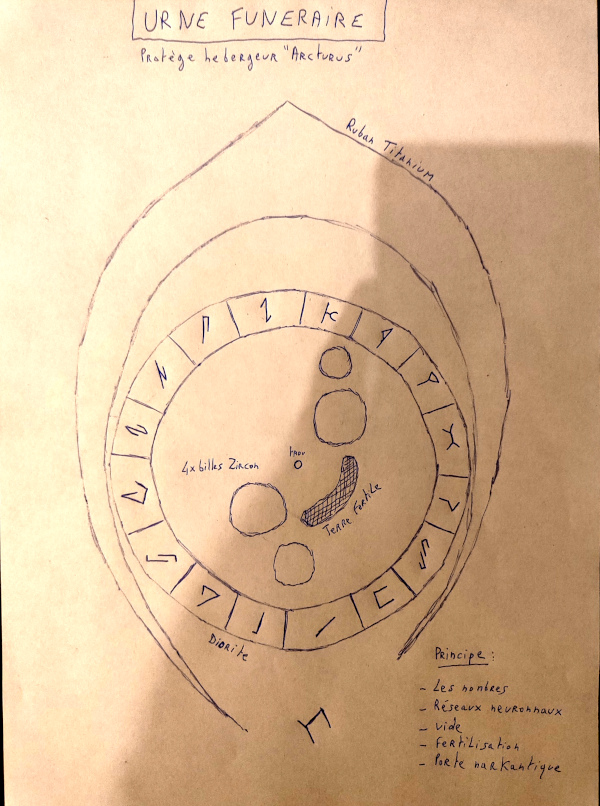 URNE FUNERAIRE
Protège hebergeur "Arcturus"
Ruban Titanium
4x billes Zircon
trou
Terre Fortile
Diorite
Principe :
- Les nombres
- Réseaux neuronnaux
- vide
- Fertilisation
- Porte narkantique